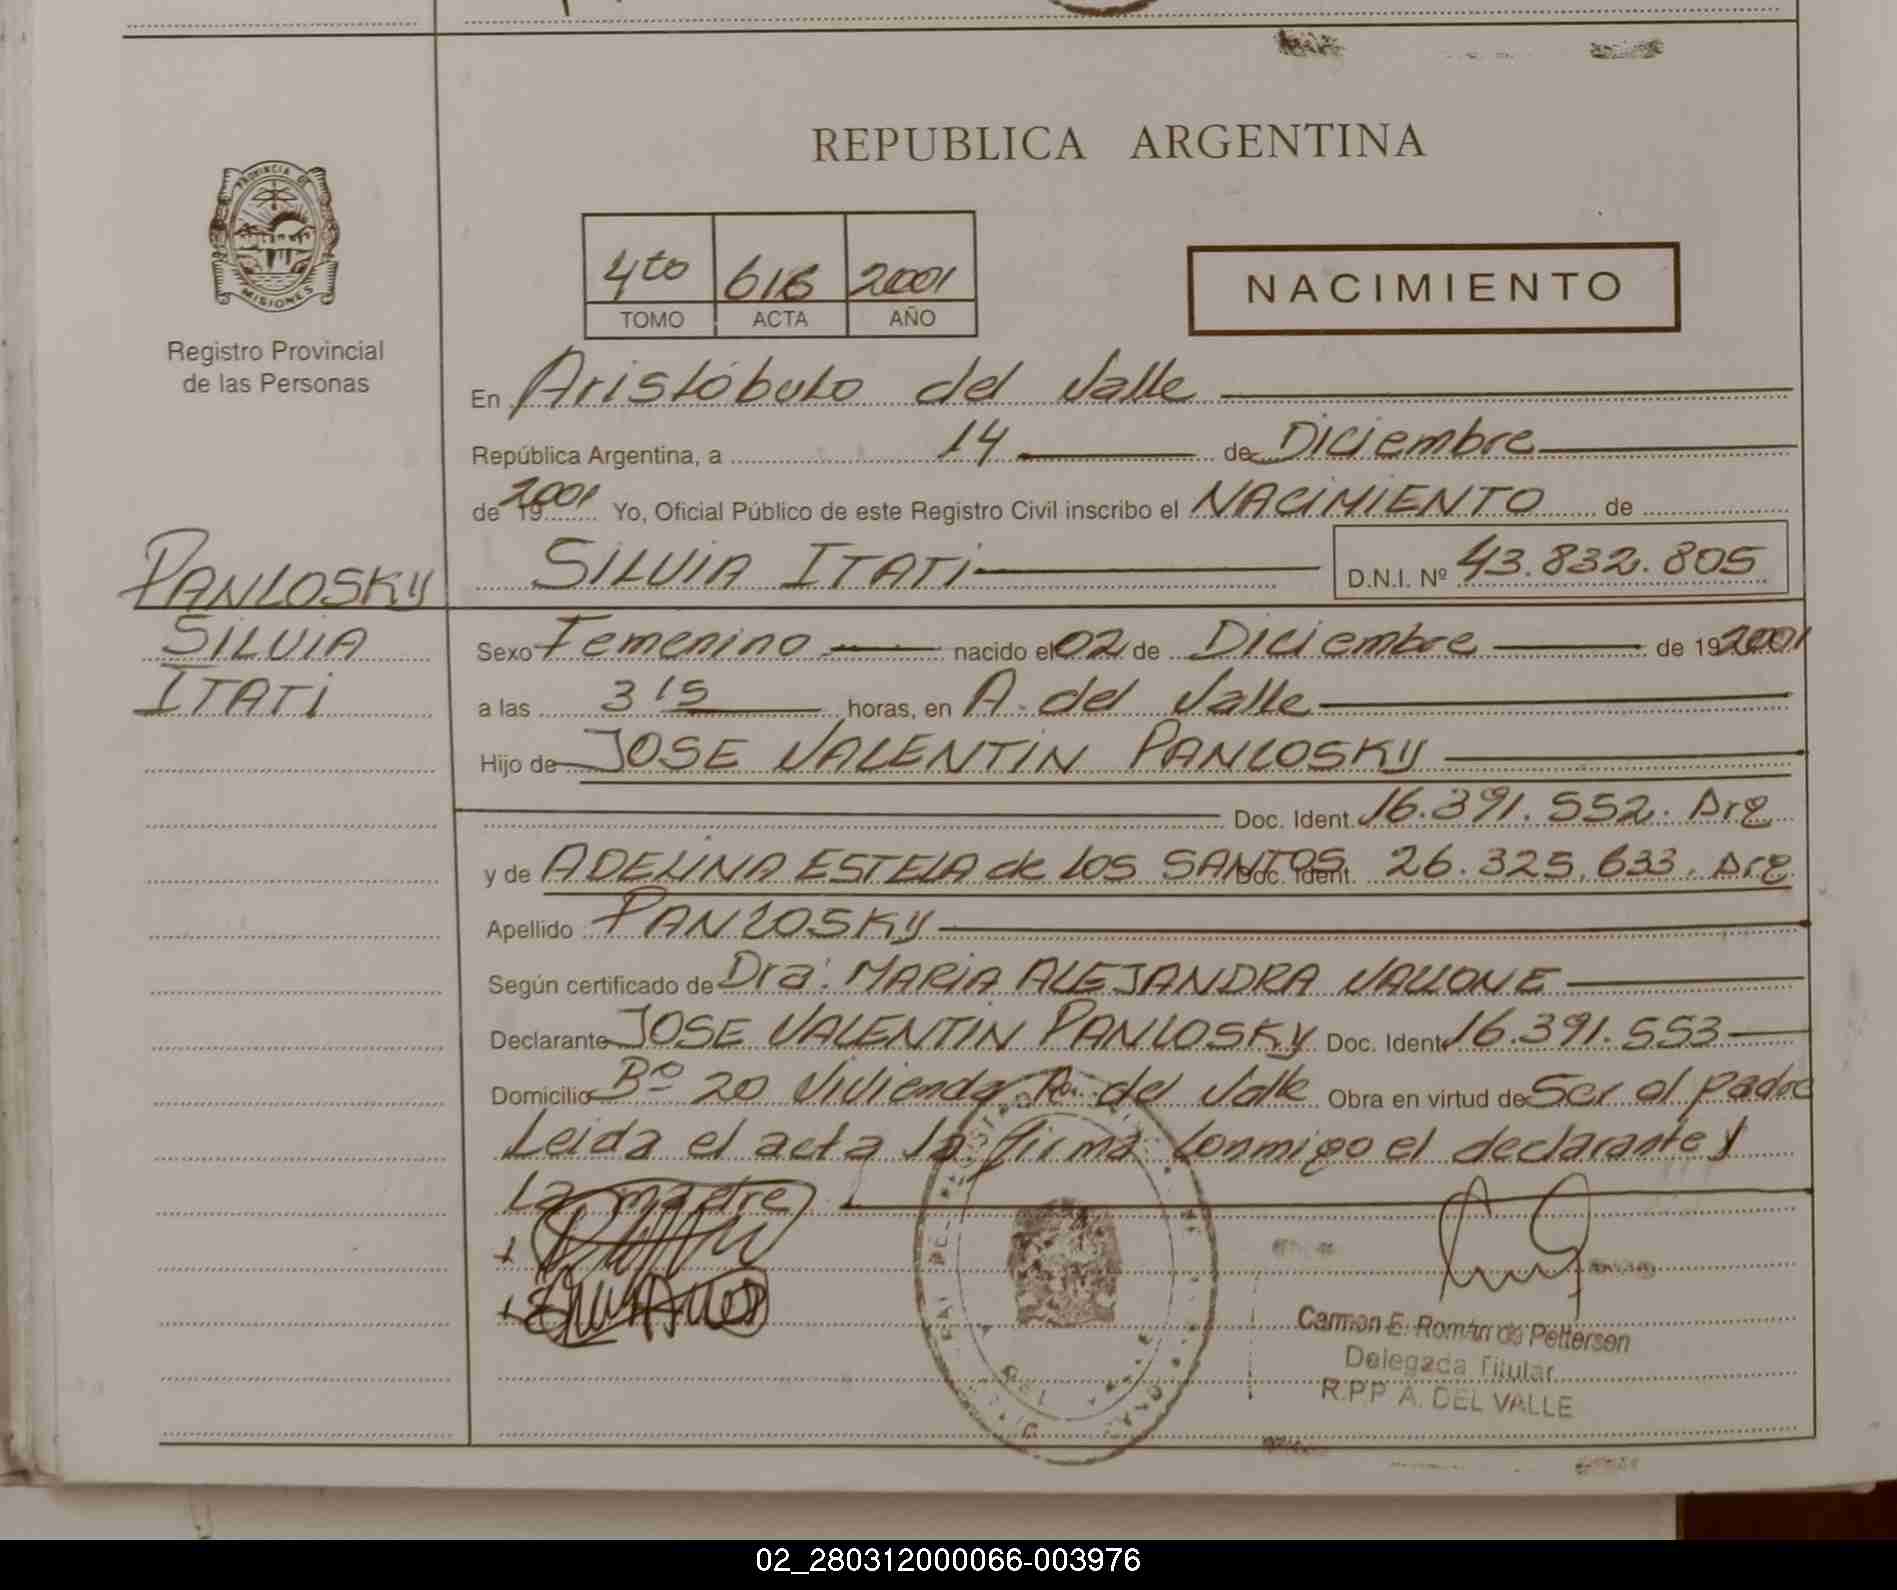 REPUBLICA ARGENTINA
PROVINCIA DE
MISIONES
Registro Provincial
de las Personas
4to 616 2001
TOMO ACTA AÑO
NACIMIENTO
En Aristóbulo del Valle
República Argentina, a 14 de Diciembre
de 19 2001 Yo, Oficial Público de este Registro Civil inscribo el NACIMIENTO de
SILVIA ITATI D.N.I. Nº 43.832.805
PANLOSKY
SILVIA
ITATI
Sexo Femenino nacido el 02 de Diciembre de 19 2001
a las 3 15 horas, en A. del Valle
Hijo de JOSE VALENTIN PANLOSKY
Doc. Ident. 16.391.552. Arg
y de ADELINA ESTELA de LOS SANTOS Doc. Ident. 26.325.633. Arg
Apellido PANLOSKY
Según certificado de Dra. MARIA ALEJANDRA VALLONE
Declarante JOSE VALENTIN PANLOSKY Doc. Ident. 16.391.553
Domicilio Bº 20 Vivienda A. del Valle Obra en virtud de Ser el padre
Leida el acta la firma conmigo el declarante y
La madre
Carmen E. Román de Pettersen
Delegada Titular
R.P.P A. DEL VALLE
02_280312000066-003976